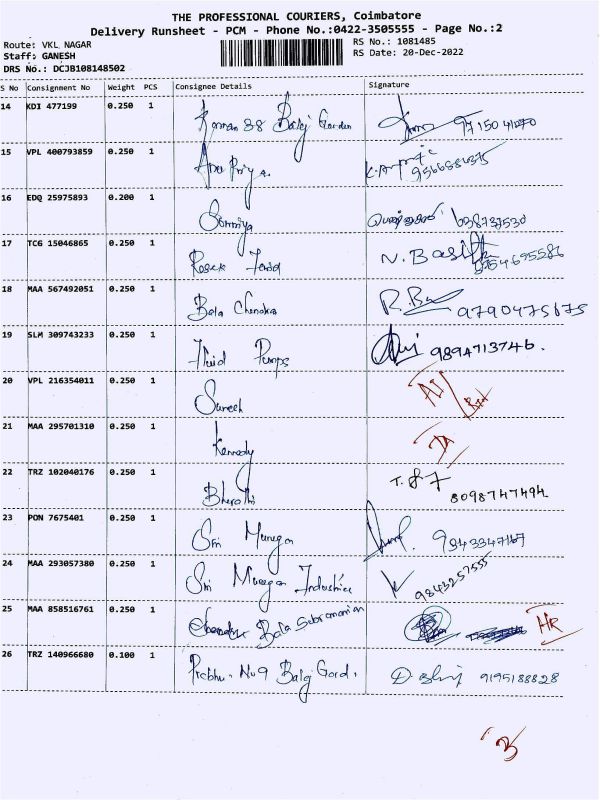 THE PROFESSIONAL COURIERS, Coimbatore
Delivery Runsheet - PCM - Phone No.:0422-3505555 - Page No.:2
Route: VKL NAGAR RS No.: 1081485
Staff: GANESH RS Date: 20-Dec-2022
DRS No.: DCJB108148502
S No Consignment No Weight PCS Consignee Details Signature
14 KDI 477199 0.250 1 Kannan 38 Balaj Garden
15 VPL 400793859 0.250 1 Anu Priya.
16 EDQ 25975893 0.200 1 Sowmiya
17 TCG 15046865 0.250 1 N. Basith
18 MAA 567492051 0.250 1 Bala Chendra R. 9790475675
19 SLM 309743233 0.250 1 Fluid Pumps 9894713746.
20 VPL 216354011 0.250 1 Suresh
21 MAA 295701310 0.250 1 Kennedy
22 TRZ 102040176 0.250 1 Bharathi 8098747494
23 PON 7675401 0.250 1 Sri Murugan
24 MAA 293057380 0.250 1 Sri Murugan Industries 9843257555
25 MAA 858516761 0.250 1 Bala Subramanian HR
26 TRZ 140966680 0.100 1 Prabhu. No 9 Balaj Gard. 9195188828
3